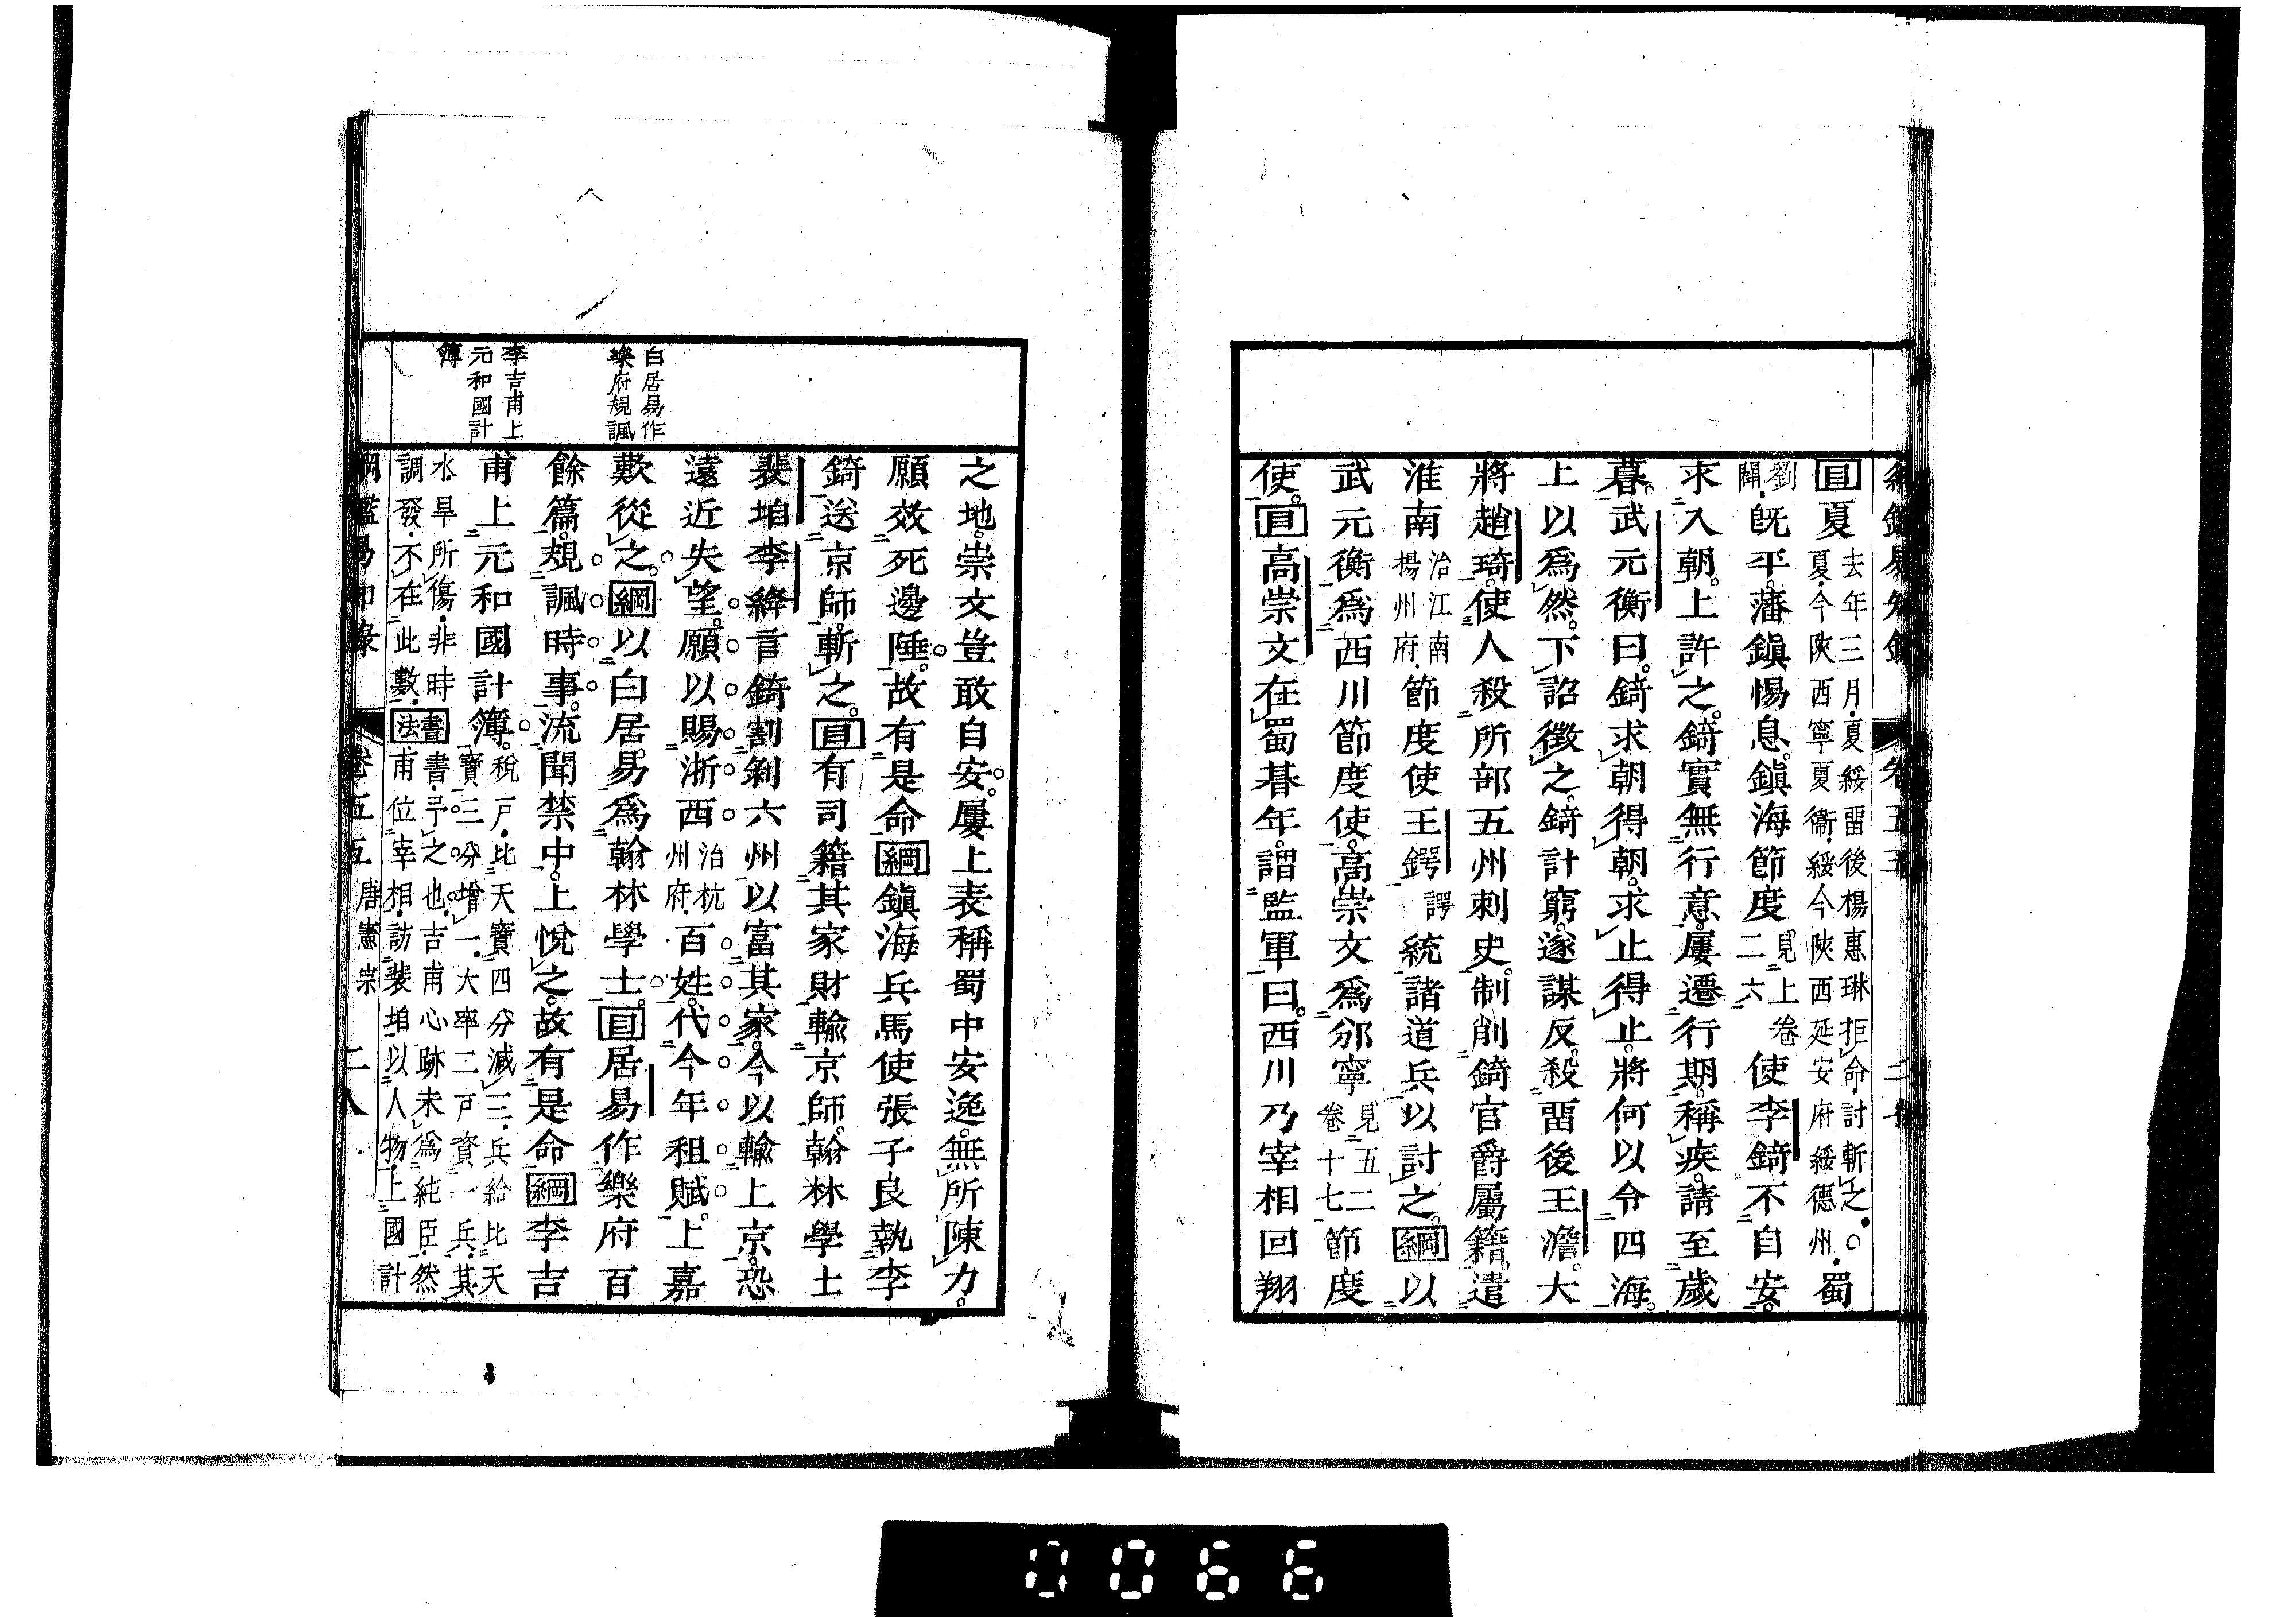 目夏去年三月夏綏畱後楊惠琳拒命討斬之○
夏今陝西寧夏衞綏今陝西延安府綏德州蜀
劉闢既平藩鎭惕息鎭海節度見上卷二六使李錡不自安
求入朝上許之錡實無行意屢遷行期稱疾請至歲
暮武元衡曰錡求朝得朝求止得止將何以令四海
上以爲然下詔徵之錡計窮遂謀反殺畱後王澹大
將趙琦使人殺所部五州刺史制削錡官爵屬籍遣
淮南治江南揚州府節度使王鍔譯統諸道兵以討之綱以
武元衡爲西川節度使高崇文爲邠寧見五二卷十七節度
使目高崇文在蜀朞年謂監軍曰西川乃宰相回翔
之地崇文豈敢自安屢上表稱蜀中安逸無所陳力
願效死邊陲故有是命綱鎭海兵馬使張子良執李
錡送京師斬之目有司籍其家財輸京師翰林學士
裴垍李絳言錡割剝六州以富其家今以輸上京恐
遠近失望願以賜浙西治杭州府百姓代今年租賦上嘉
歎從之綱以白居易爲翰林學士目居易作樂府百
餘篇規諷時事流聞禁中上悅之故有是命綱李吉
甫上元和國計簿稅戸比天寶四分減三兵給比天
寶三分增一大率二戸資一兵其
水旱所傷非時調發不在此數書法書予之也吉甫心跡未爲純臣然
甫位宰相訪裴垍以人物上國計
白居易作
樂府規諷
李吉甫上
元和國計
簿
綱鑑易知錄 卷五五 唐憲宗 二八
0066